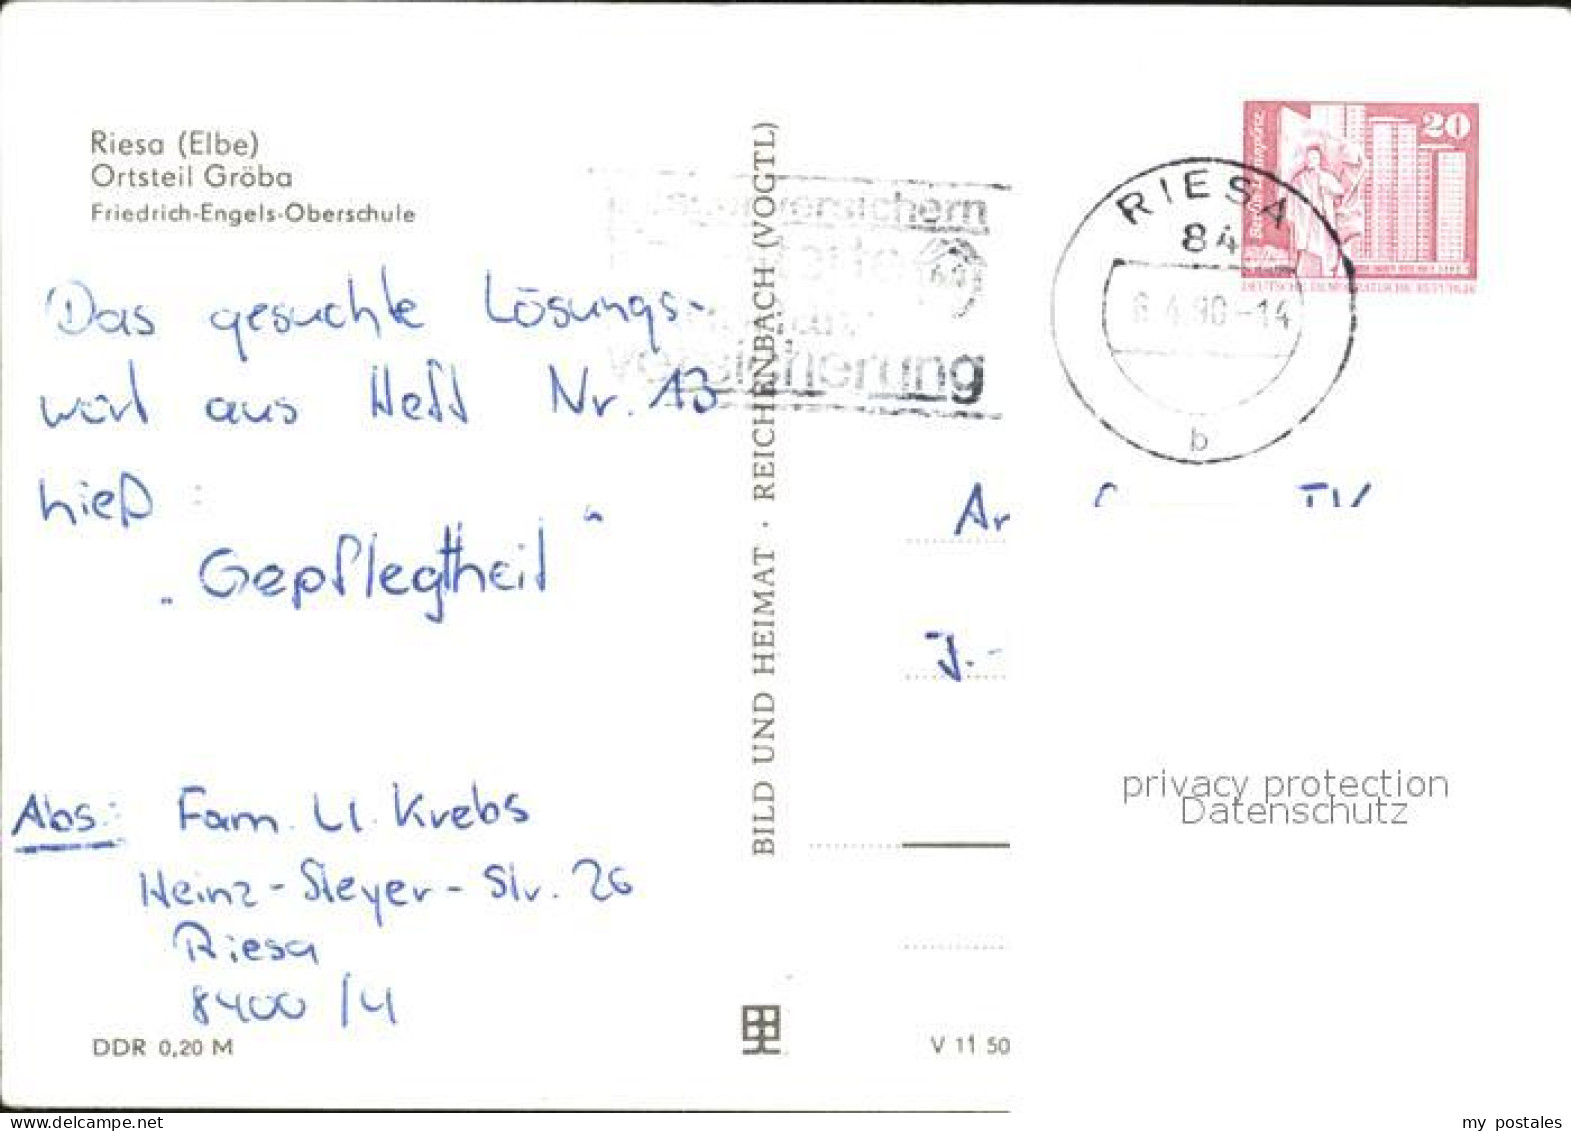 Riesa (Elbe)
Ortsteil Gröba
Friedrich-Engels-Oberschule
Das gesuchte Lösungs-
wort aus Heft Nr. 13
hieß :
„Gepflegtheit“
Abs.: Fam. U. Krebs
Heinz-Steyer-Str. 26
Riesa
8400 /4
DDR 0,20 M
BILD UND HEIMAT · REICHENBACH (VOGTL)
versichern
versicherung
20
RIESA
84
6.4.90-14
b
J.-
V 11 50
privacy protection
Datenschutz
my postales